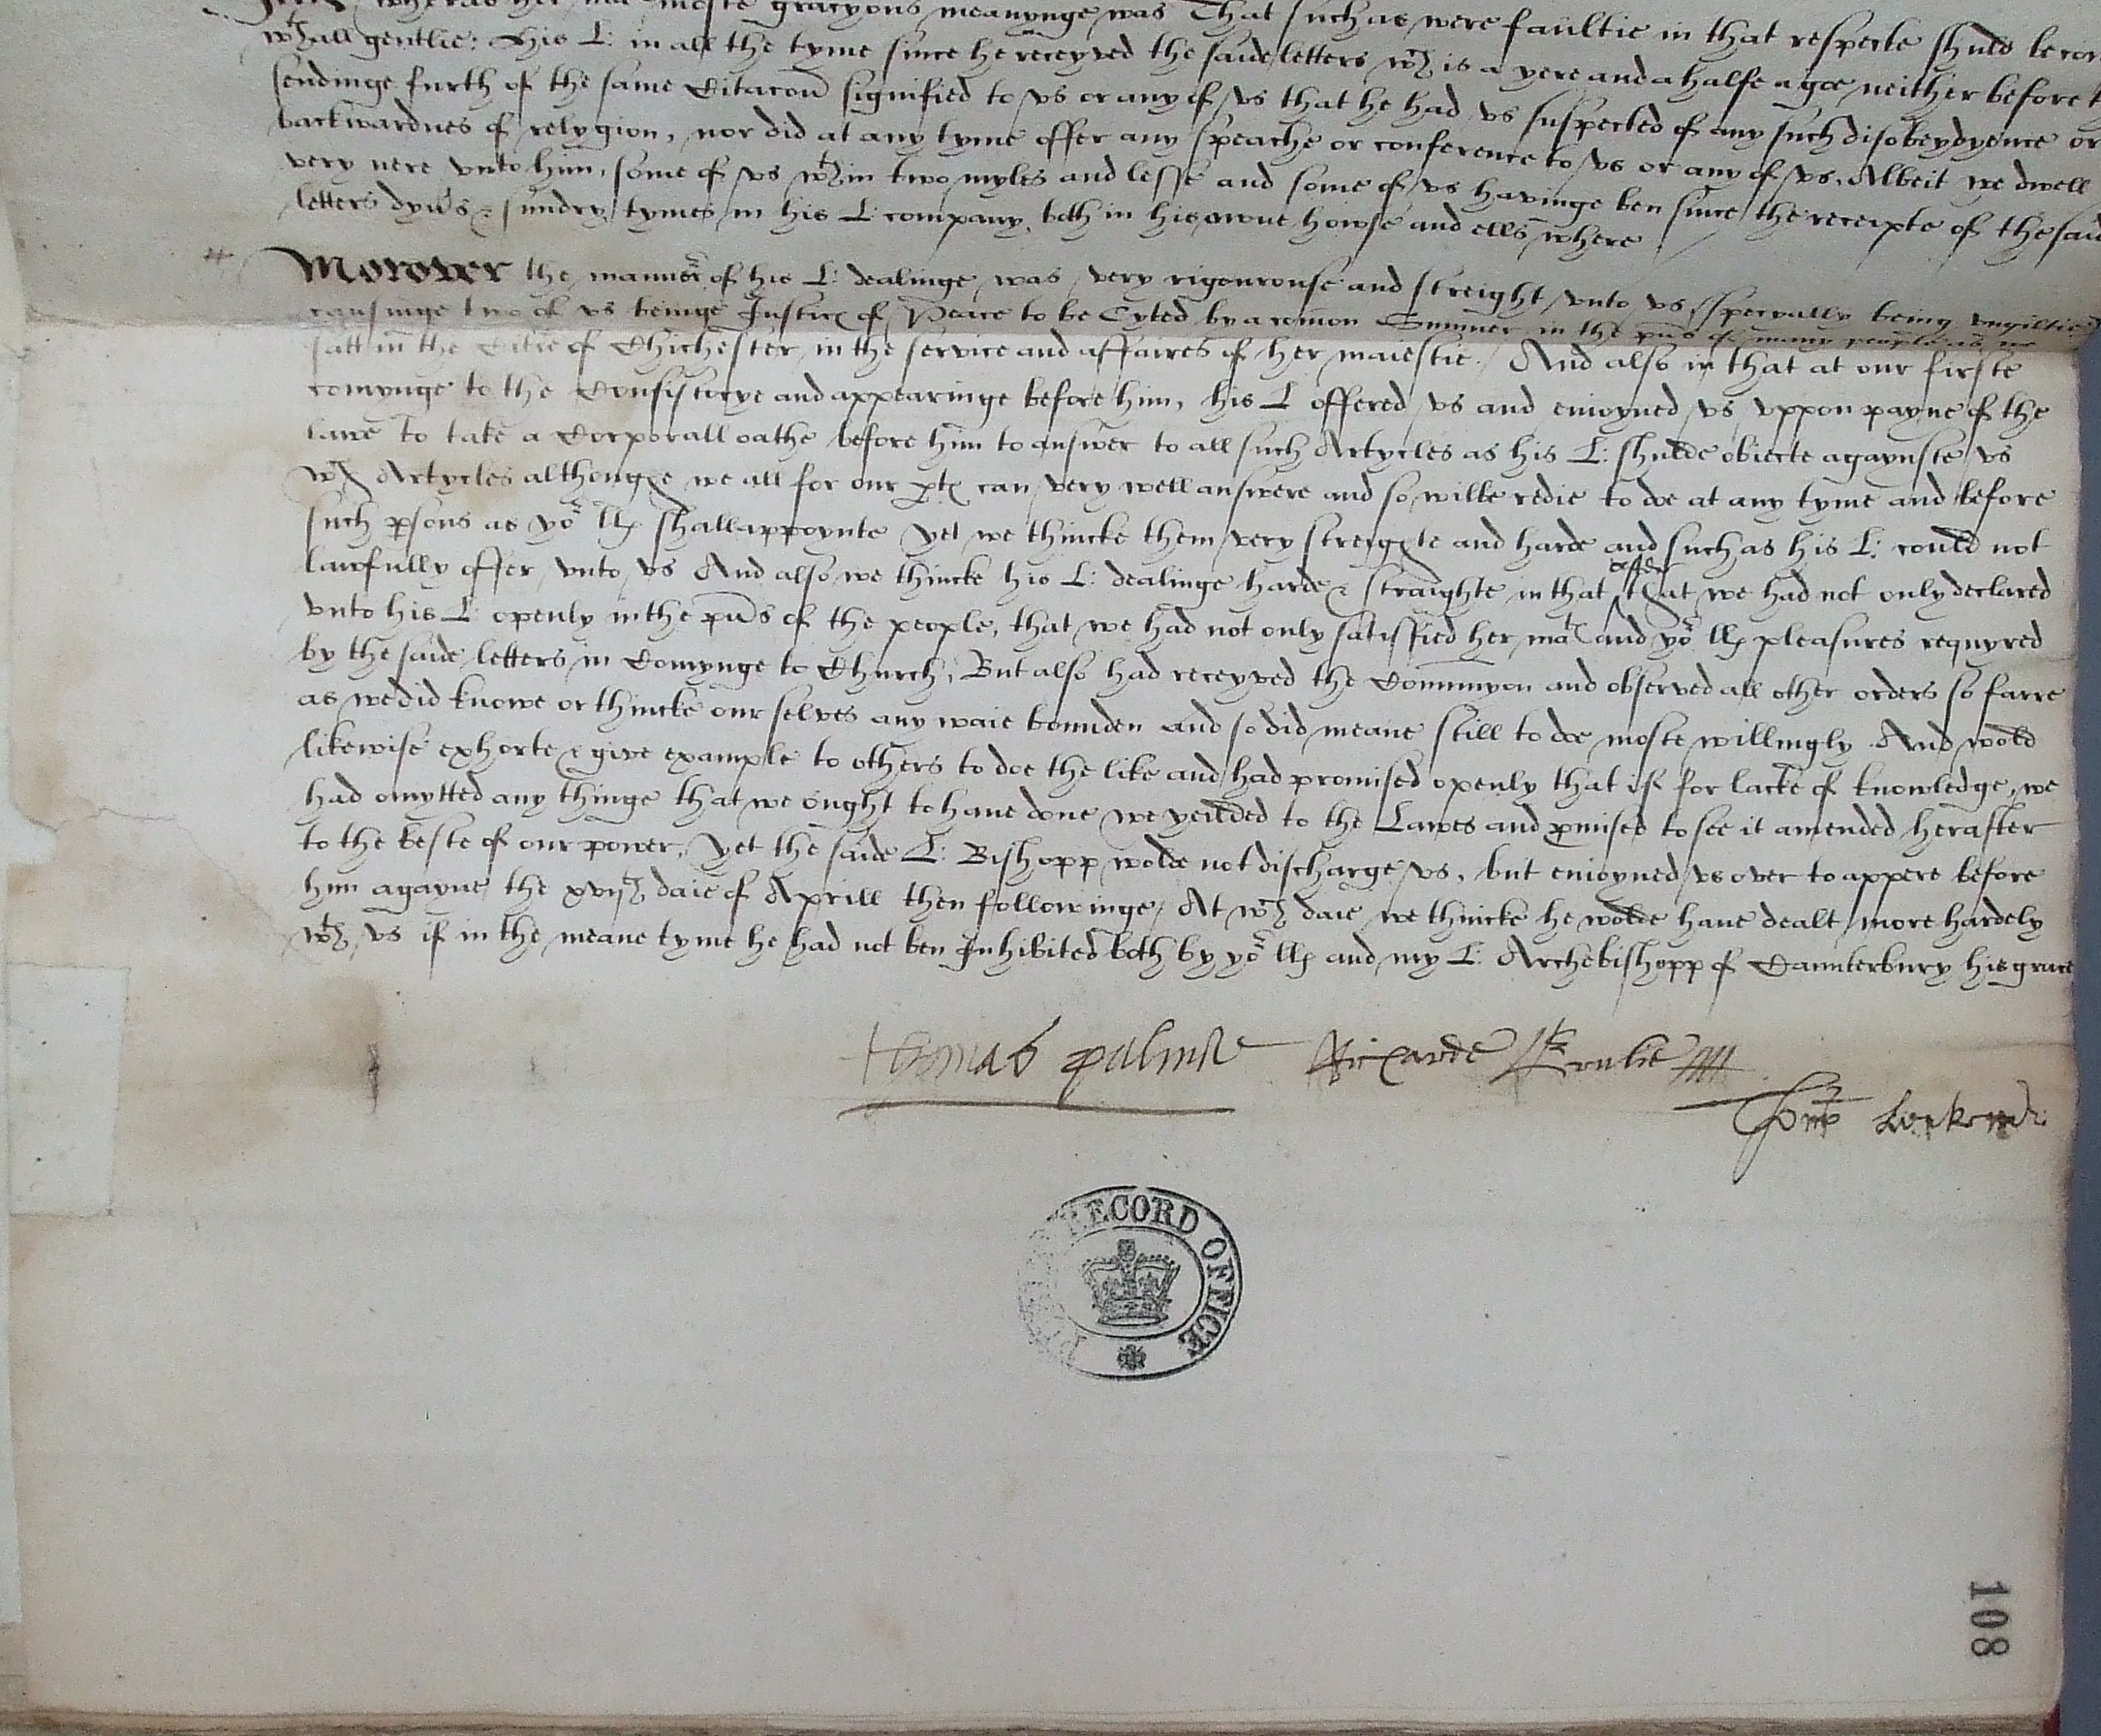 wheras her ma moste gracyous meanynge was That such as were faultie in that respecte shuld be
wth all gentlie: His L: in all the tyme since he receyved the saide letters wch is a yere and a halfe agoe neither before
sendinge furth of the same Citacon signified to vs or any of vs that he had vs suspected of any such disobeydyence or
backwardnes of relygion, nor did at any tyme offer any speache or conference to vs or any of vs, Albeit we dwell
very nere vnto him, some of vs wthin two myles and lesse and some of vs havinge ben since the receipte of the said
letters dyvs & sundry tymes in his L: company, both in his owne howse and ells where
Morover the manner of his L: dealinge was very rigourouse and streight vnto vs specyally being vngiltie
causinge two of vs beinge Justices of Peace to be Cyted by a comon Sumner in the pns of many people as we
satt in the Citie of Chichester, in the service and affaires of her maiestie. And also in that at our firste
comynge to the Consistorye and appearinge before him, his L offered vs and enioyned vs vppon payne of the
lawe to take a Corporall oathe before him to answer to all such Artycles as his L: shulde obiecte agaynste vs
wch Artycles althoughe we all for our ptes can very well answere and so wilbe redie to doe at any tyme and before
such psons as yor llps shall appoynte yet we thincke them very streighte and harde and such as his L: could not
lawfully offer vnto vs And also we thincke his L: dealinge harde & straighte in that after that we had not only declared
vnto his L: openly in the pns of the people, that we had not only satisfied her matie and yor llps pleasures requyred
by the saide letters in Comynge to Church, But also had receyved the Comunyon and observed all other orders so farre
as we did knowe or thincke our selves any waie bounden and so did meane still to doe moste willingly. And wold
likewise exhorte & give example to others to doe the like and had promised openly that if for lacke of knowledge, we
had omytted any thinge that we ought to have done we yeilded to the Lawes and pmised to see it amended herafter
to the beste of our power, Yet the saide L: Bishopp wolde not discharge vs, but enioyned vs over to appere before
him agayne the xvijth daie of Aprill then followinge, At wch daie we thincke he wolde have dealt more hardely
wth vs if in the meane tyme he had not ben Inhibited both by yor llps and my L: Archebishopp of Caunterbury his grace
Thomas palmer Richarde Ernlie
Thoms Lewkenor
PUBLIC RECORD OFFICE
108